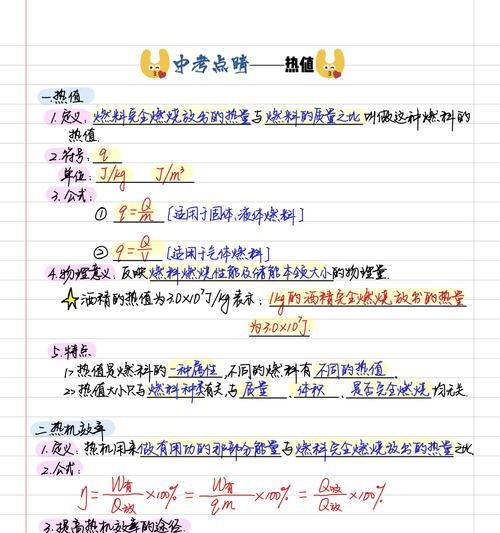 中考点睛——热值
一.热值
1.定义:燃料完全燃烧放出的热量与燃料的质量之比叫做这种燃料的
热值.
2.符号: q
单位: J/kg J/m³
3.公式:
① q=Q/m [适用于固体、液体燃料]
② q=Q/V [适用于气体燃料]
4.物理意义:反映燃料燃烧性能及储能本领大小的物理量.
☆酒精的热值为3.0×10⁷J/kg表示:1kg的酒精完全燃烧放出的热量
为3.0×10⁷J.
5.特点
1>热值是燃料的一种属性,不同的燃料有不同的热值.
2>热值大小只与燃料种类有关,与质量、体积、是否完全燃烧均无关.
二.热机效率
1.定义:热机用来做有用功的那部分能量与燃料完全燃烧放出的热量之比
2.公式:
η=W有/Q放×100%=W有/qm×100%=Q吸/Q放×100%
3.提高热机效率的途径.